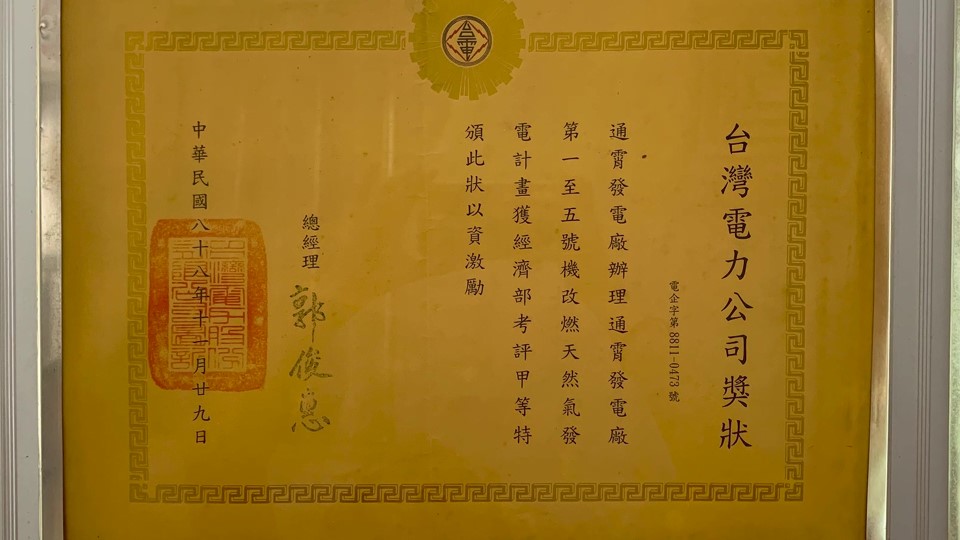 台電
台灣電力公司獎狀
電企字第8811-0473號
通霄發電廠辦理通霄發電廠
第一至五號機改燃天然氣發
電計畫獲經濟部考評甲等特
頒此狀以資激勵
總經理 郭俊惠
中華民國八十八年十一月廿九日